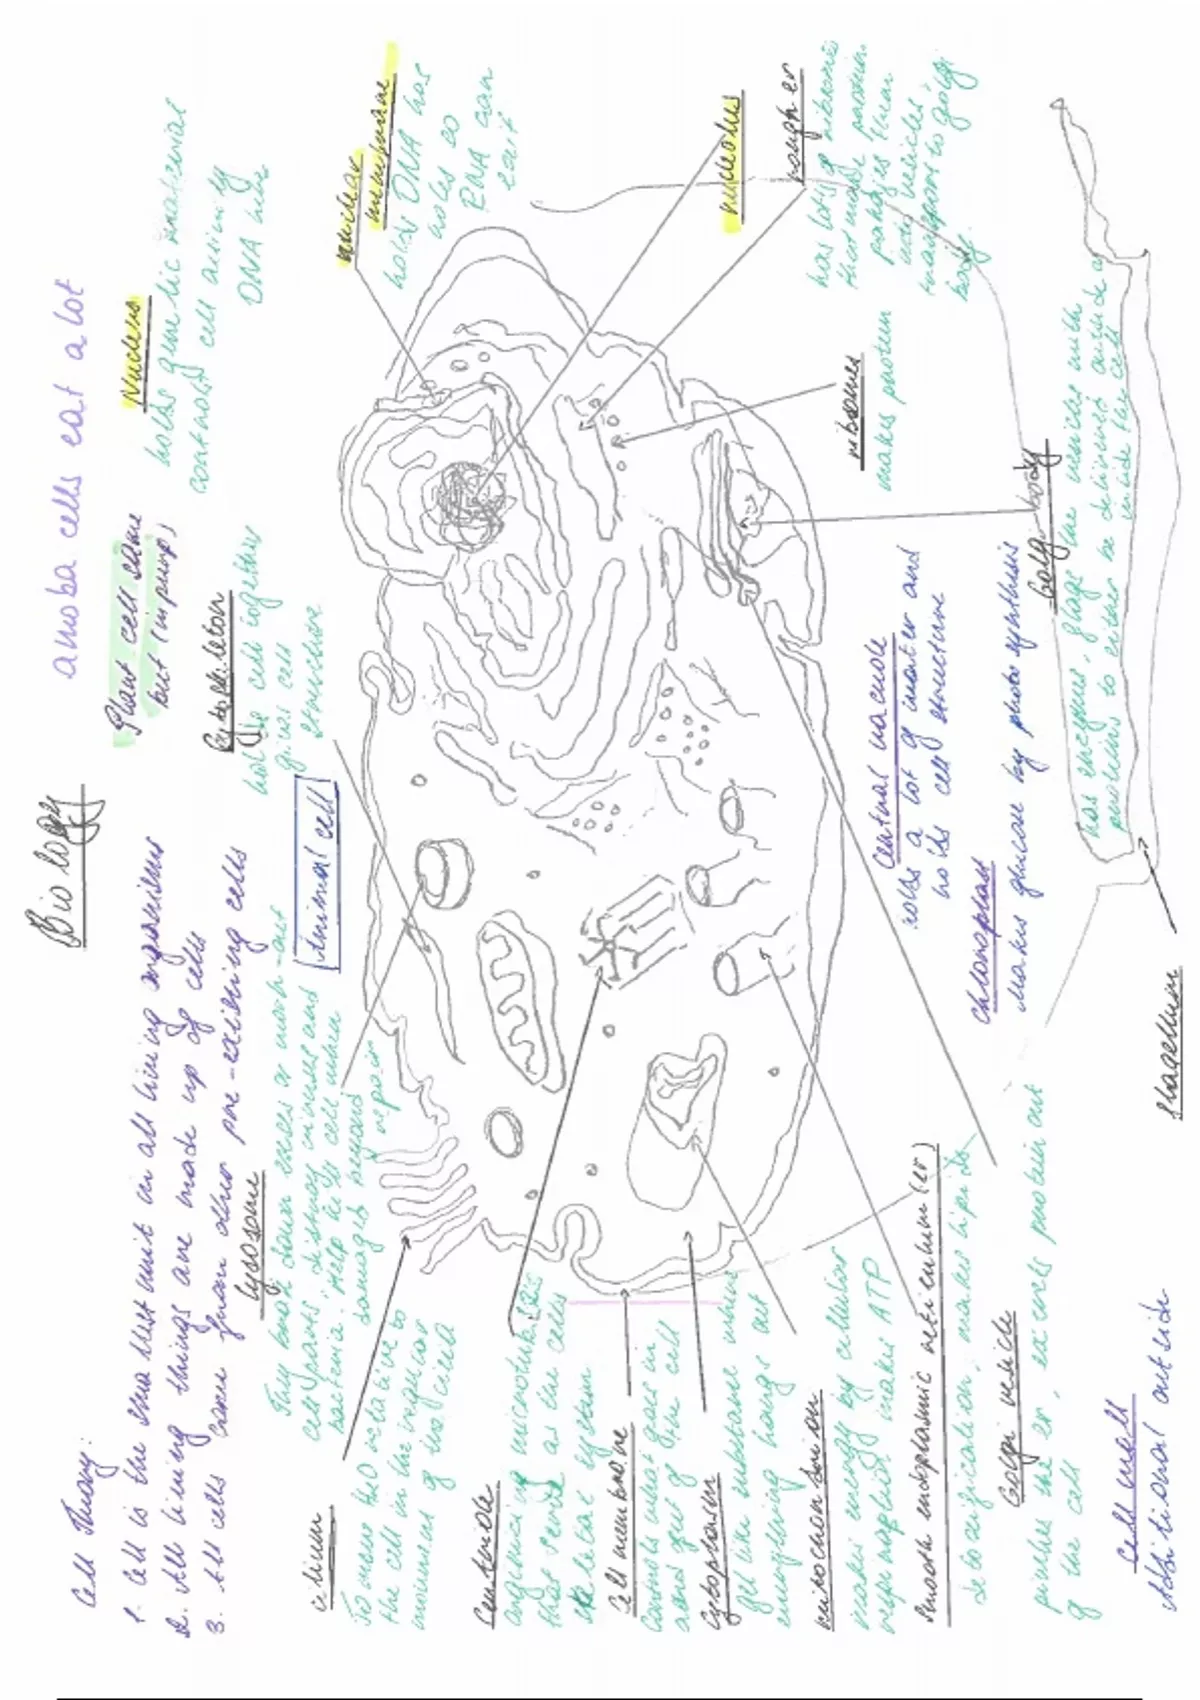 Biology
amoba cells eat a lot
Cell Theory:
1. Cell is the smallest unit in all living organisms
2. All living things are made up of cells
3. All cells come from other pre-existing cells
Plant cell same
but (in purp)
Nucleus
holds genetic material
controls cell activity
DNA here
Lysosome
They break down cells or worn-out
cell parts, destroy viruses and
bacteria. Help the cell when
damage is beyond
repair
Cytoskeleton
holds cell together
gives cell
structure
Animal cell
nuclear
membrane
holds DNA has
holes so
RNA can
exit
cilium
To move
the cell in the
movement of the cell
Centriole
organizing microtubules
that serve as the cells
skeletal system
Cell membrane
Controls what goes in
and out of the cell
Cytoplasm
gel like substance where
everything hangs out
mitochondrion
makes energy by cellular
respiration, makes ATP
Smooth endoplasmic reticulum (er)
detoxification, makes lipids
Golgi vesicle
pinches the er, excretes protein out
of the cell
Cell wall
Additional outside
nucleolus
rough er
has lots of ribosomes
that make protein
packages them
into vesicles
transport to golgi
body.
ribosomes
makes protein
Central vacuole
holds a lot of water and
holds cell structure
Chloroplast
Makes glucose by photosynthesis
Golgi body
has enzymes, the vesicles with
proteins to either be delivered outside or
inside the cell
flagellum